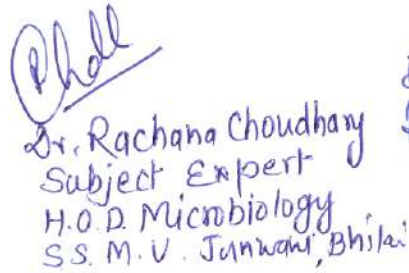 Dr. Rachana Choudhary
Subject Expert
H.O.D. Microbiology
S.S. M. V. Junwani, Bhilai